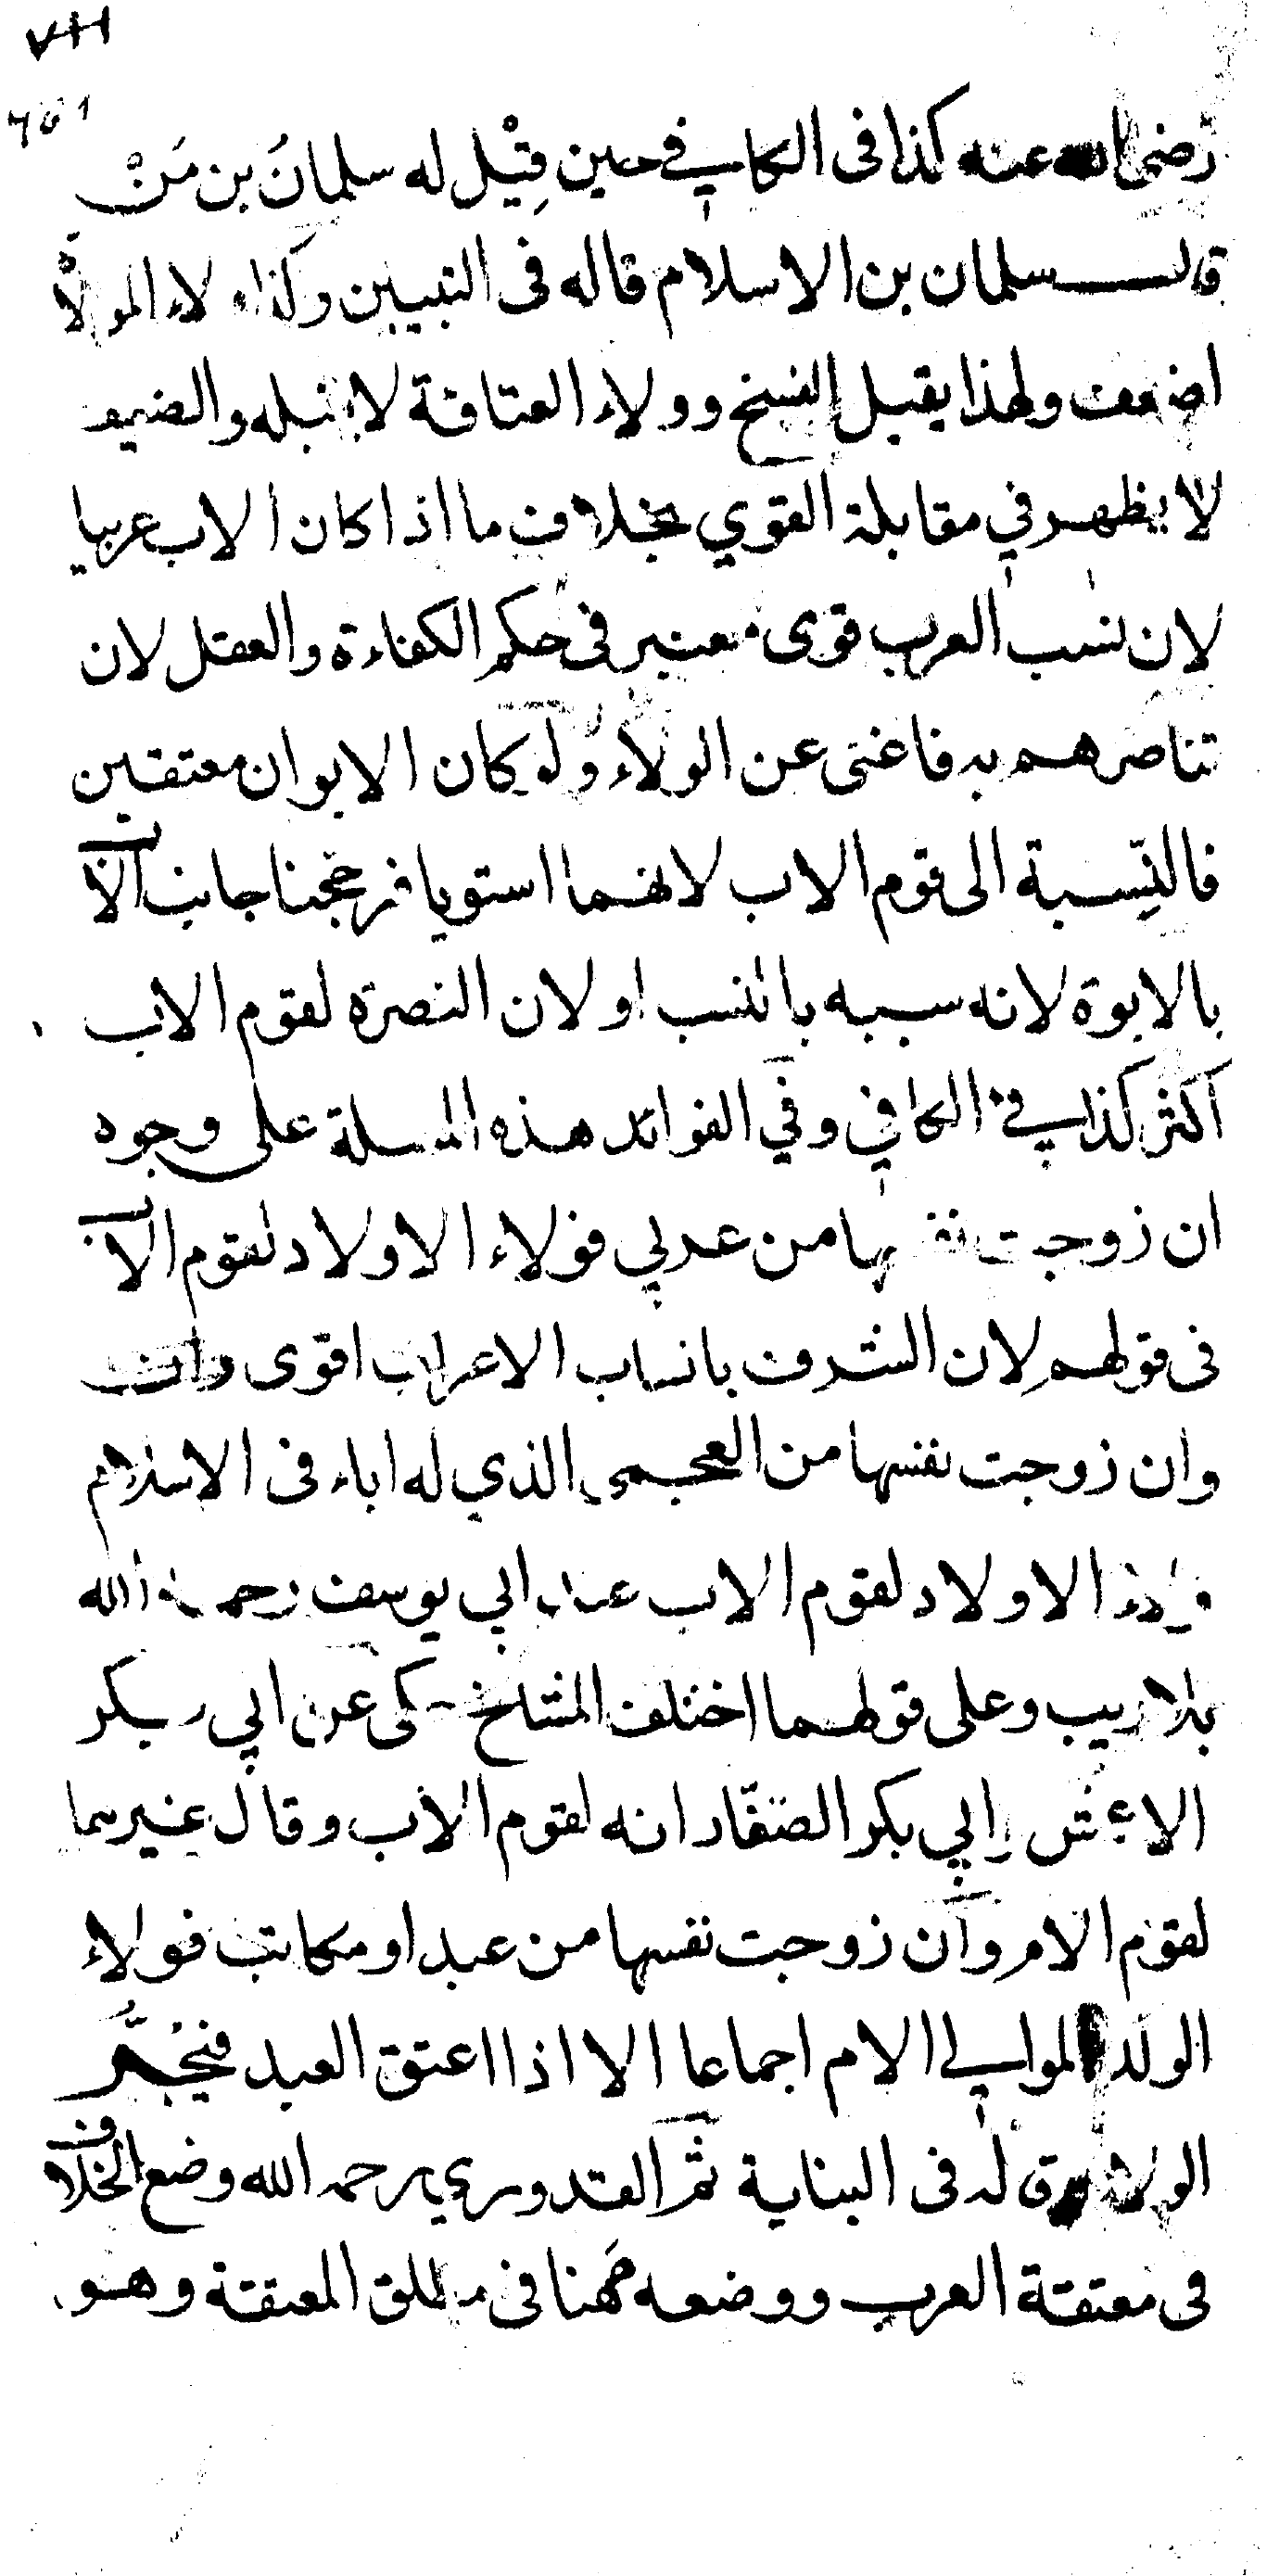 رضى الله عنه كذا فى الكافي حين قِيْل له سلمانُ بن مَنْ
قال سلمان بن الاسلام قاله فى التبيين وكذا ولاء الموالاة
اضعف ولهذا يقبل الفسخ وولاء العتاقة لا يقبله والضعيف
لا يظهر في مقابلة القوي بخلاف ما اذا كان الاب عربيا
لان نسب العرب قوى معتبر فى حكم الكفاءة والعقل لان
تناصرهم به فاغنى عن الولاء ولو كان الابوان معتقين
فالنِّسبة الى قوم الاب لانهما استويا فرجحنا جانب الاب
بالابوة لانه سببه بالنسب او لان النصرة لقوم الاب
اكثر كذا في الكافي وفي الفوائد هذه المسلة على وجوه
ان زوجت نفسها من عربي فولاء الاولاد لقوم الاب
فى قولهم لان الشرف بانساب الاعراب اقوى
وان زوجت نفسها من العجمي الذي له اباء فى الاسلام
فولاء الاولاد لقوم الاب عند ابي يوسف رحمه الله
بلا ريب وعلى قولهما اختلف المشايخ حكى عن ابي بكر
الاعمش وابي بكر الصفّار انه لقوم الاب وقال غيرهما
لقوم الام وان زوجت نفسها من عبد او مكاتب فولاء
الولد لموالي الام اجماعا الا اذا اعتق العبد فيَجُرُّ
الولاء قاله فى البناية ثم القدوري رحمه الله وضع الخلاف
فى معتقة العرب ووضعه ههنا فى مطلق المعتقة وهو